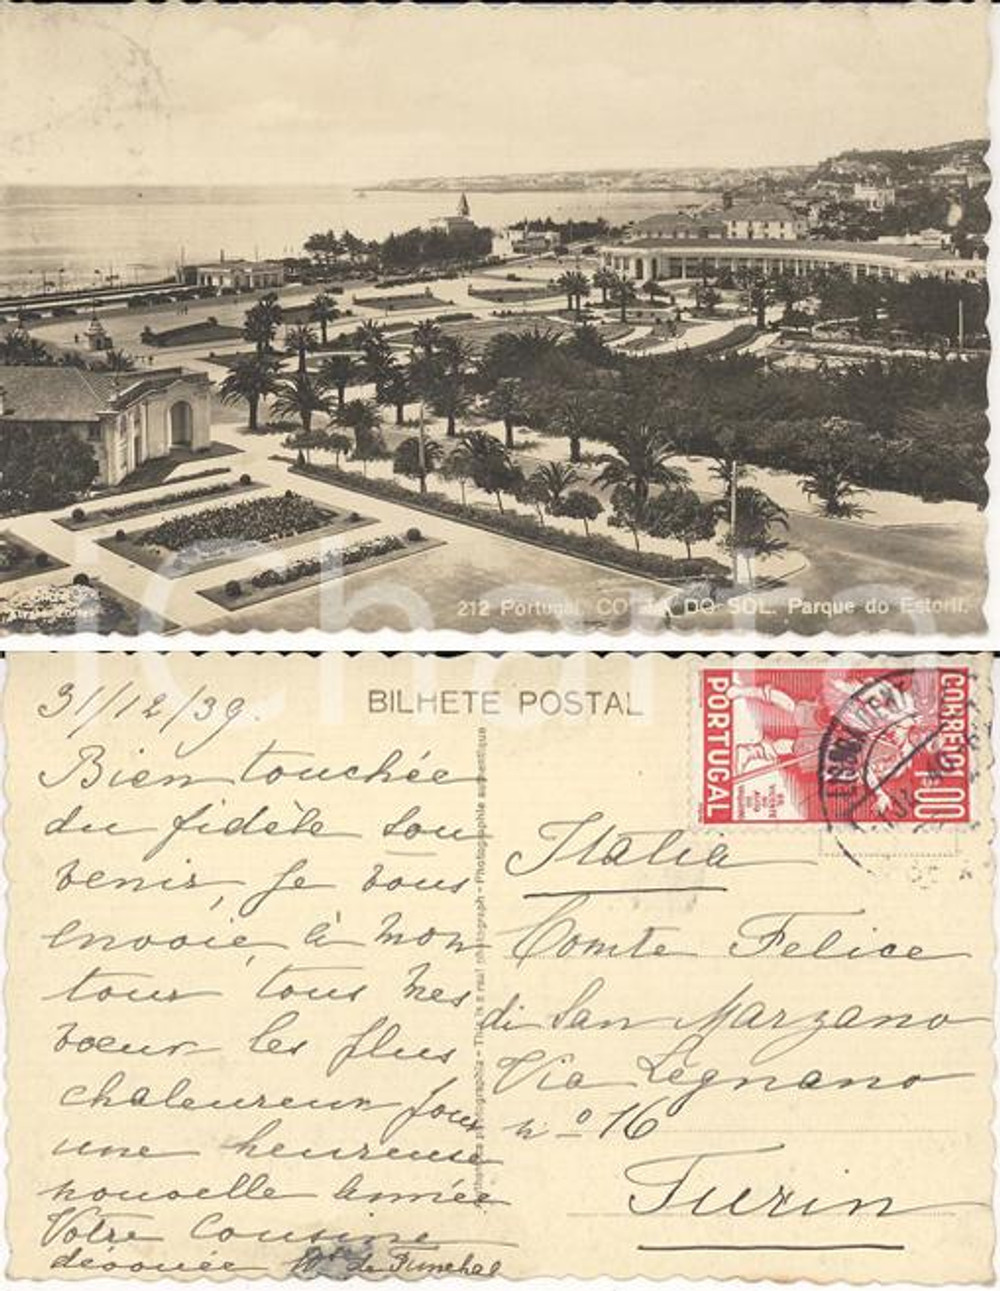 212 Portugal. COSTA DO SOL. Parque do Estoril.
31/12/39.
BILHETE POSTAL
Bien touchée
du fidèle sou
venir, je vous
envoie, à mon
tour, tous mes
vœux les plus
chaleureux pour
une heureuse
nouvelle année
Votre Cousine
dévouée de Funchal
Photographia authentica - This is a real photograph - Photographie authentique
CORREIO
PORTUGAL
1$00
LISBOA
Italia
Comte Felice
di San Marzano
Via Legnano
n° 16
Turin